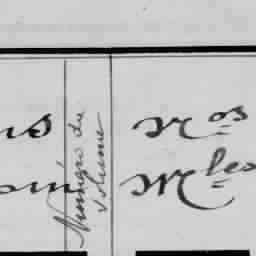 ns
Numéro du
volume
Nos
Mles